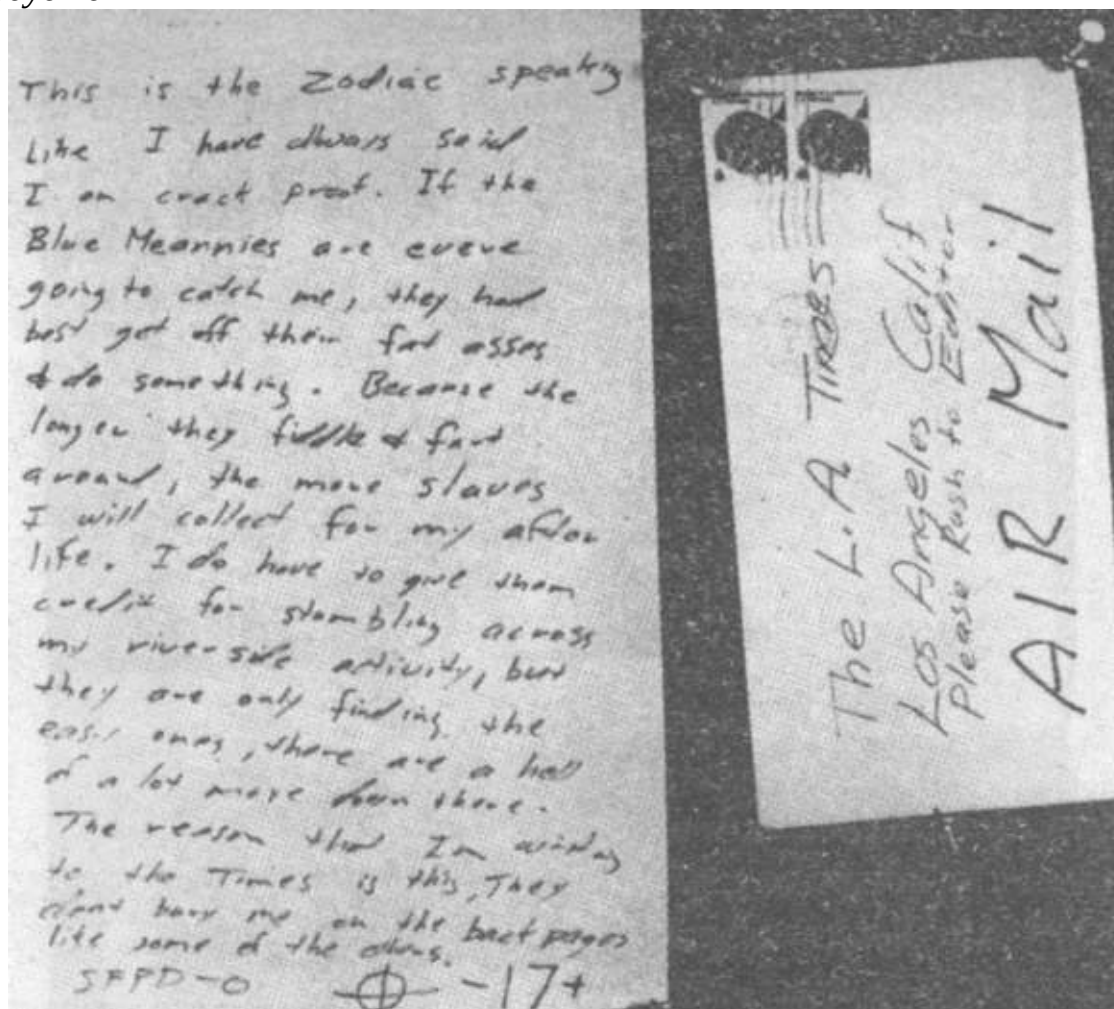 This is the Zodiac speaking
Like I have always said
I am crack proof. If the
Blue Meannies are evere
going to catch me, they had
best get off their fat asses
& do something. Because the
longer they fiddle & fart
around, the more slaves
I will collect for my after
life. I do have to give them
credit for stumbling across
my riverside activity, but
they are only finding the
easy ones, there are a hell
of a lot more down there.
The reason that Im writing
to the Times is this, They
dont bury me on the back pages
like some of the others.
SFPD-0 -17+
The L.A Times
Los Angeles Calif
Please Rush to Editor
AIR Mail